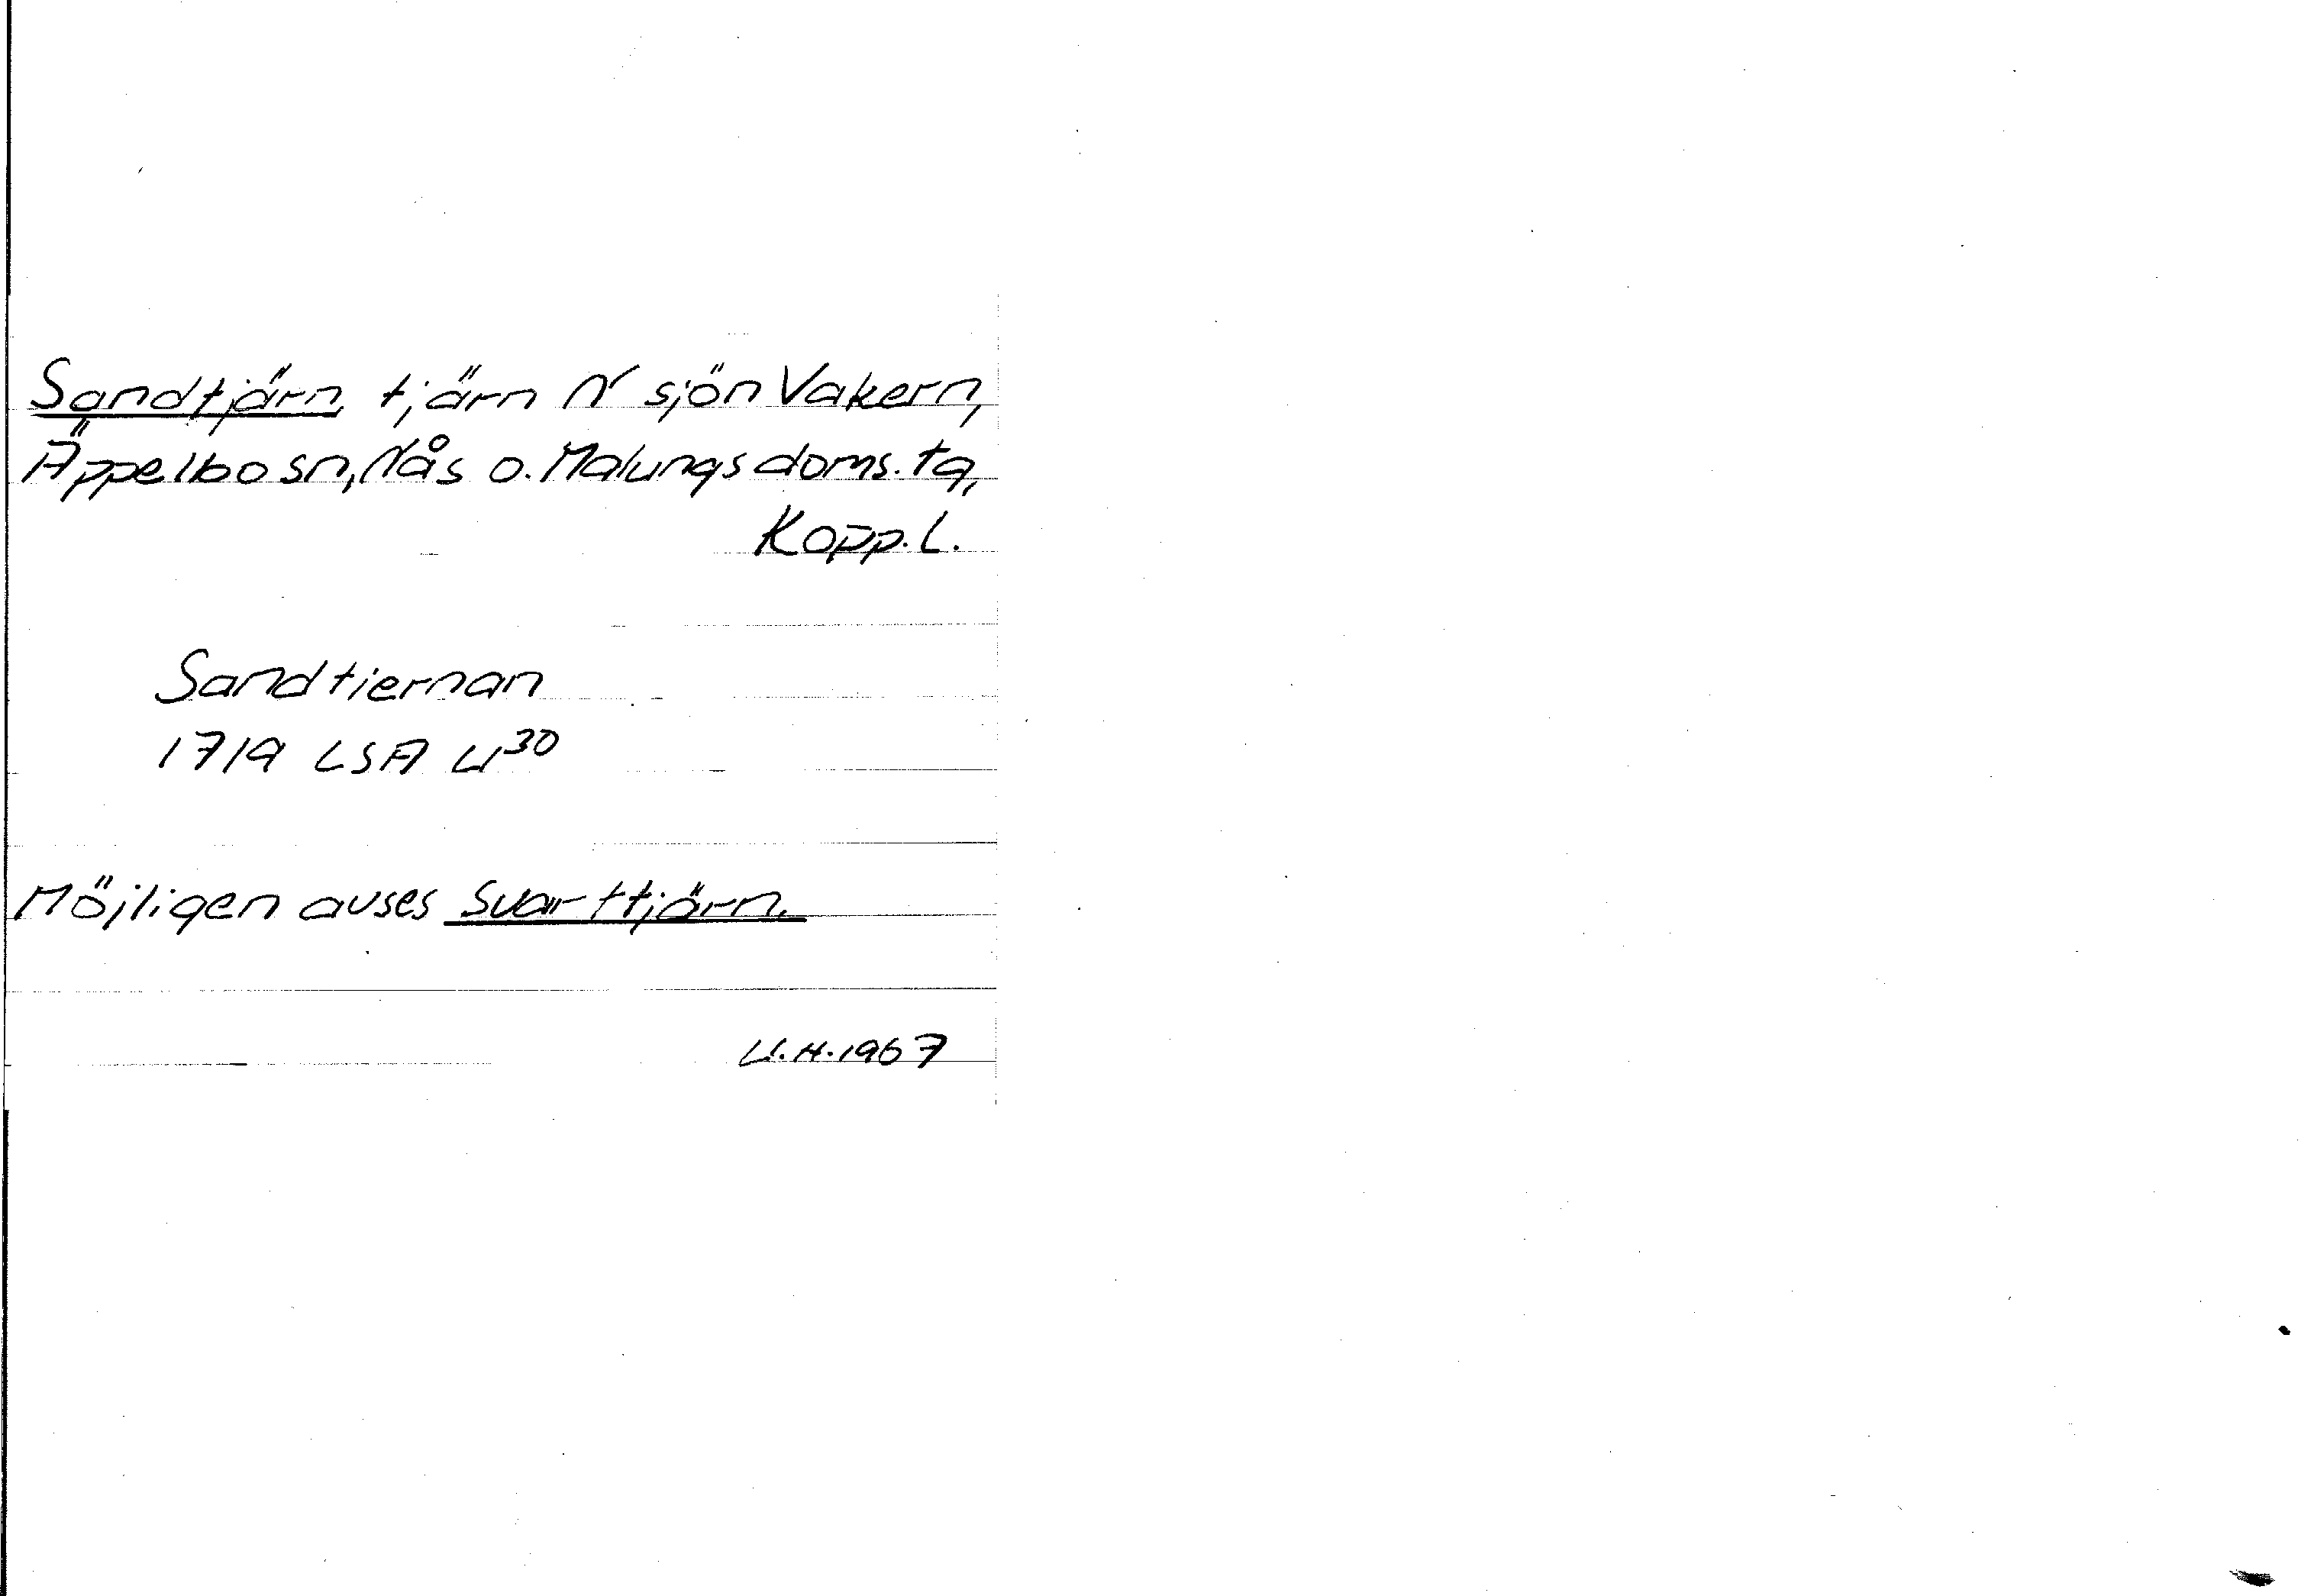 Sandtjärn, tjärn N sjön Vakern,
Äppelbo sn, Nås o. Malungs doms. tg,
Kopp. L.
Sandtiernan
1719 LSA U³⁰
Möjligen avses Svarttjärn.
U.H. 1967